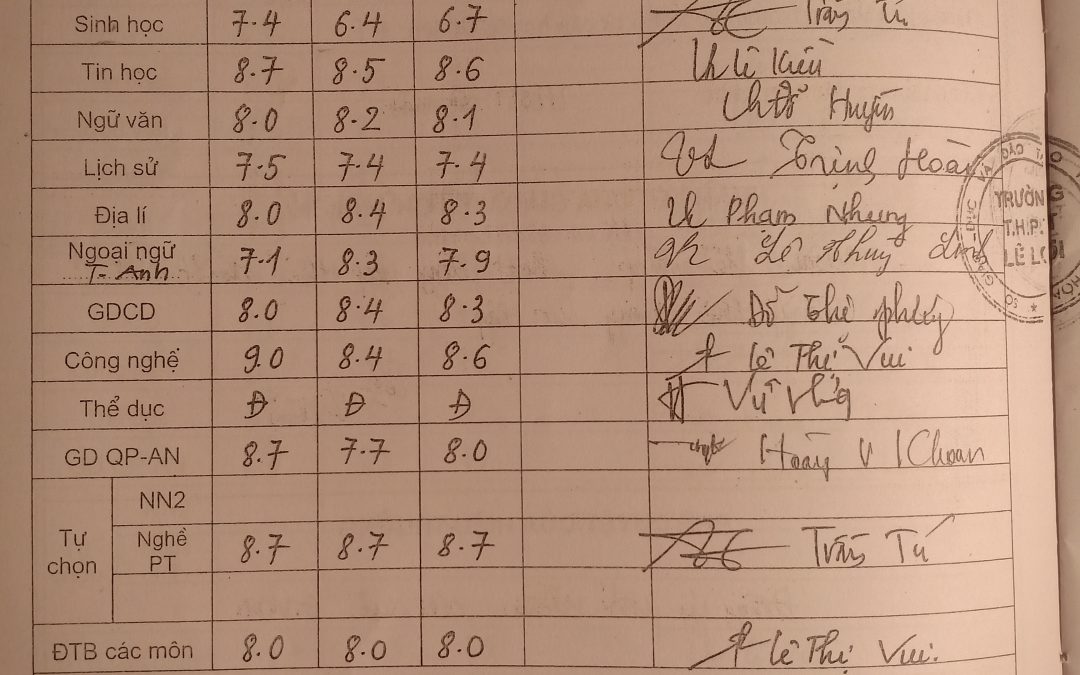 Sinh học 7.4 6.4 6.7 Trần Tú
Tin học 8.7 8.5 8.6 Lê Kiều
Ngữ văn 8.0 8.2 8.1 Đỗ Huyền
Lịch sử 7.5 7.4 7.4 Hoàn
Địa lí 8.0 8.4 8.3 Phạm Nhung
Ngoại ngữ 7.1 8.3 7.9 Lê Thuỳ Linh
T- Anh
GDCD 8.0 8.4 8.3 Đỗ Thế
Công nghệ 9.0 8.4 8.6 Lê Thị Vui
Thể dục Đ Đ Đ Vũ
GD QP-AN 8.7 7.7 8.0 Hoàng V Khoan
Tự chọn
NN2
Nghề PT 8.7 8.7 8.7 Trần Tú
ĐTB các môn 8.0 8.0 8.0 Lê Thị Vui.
TRƯỜNG
T.H.P.T
LÊ LỢI